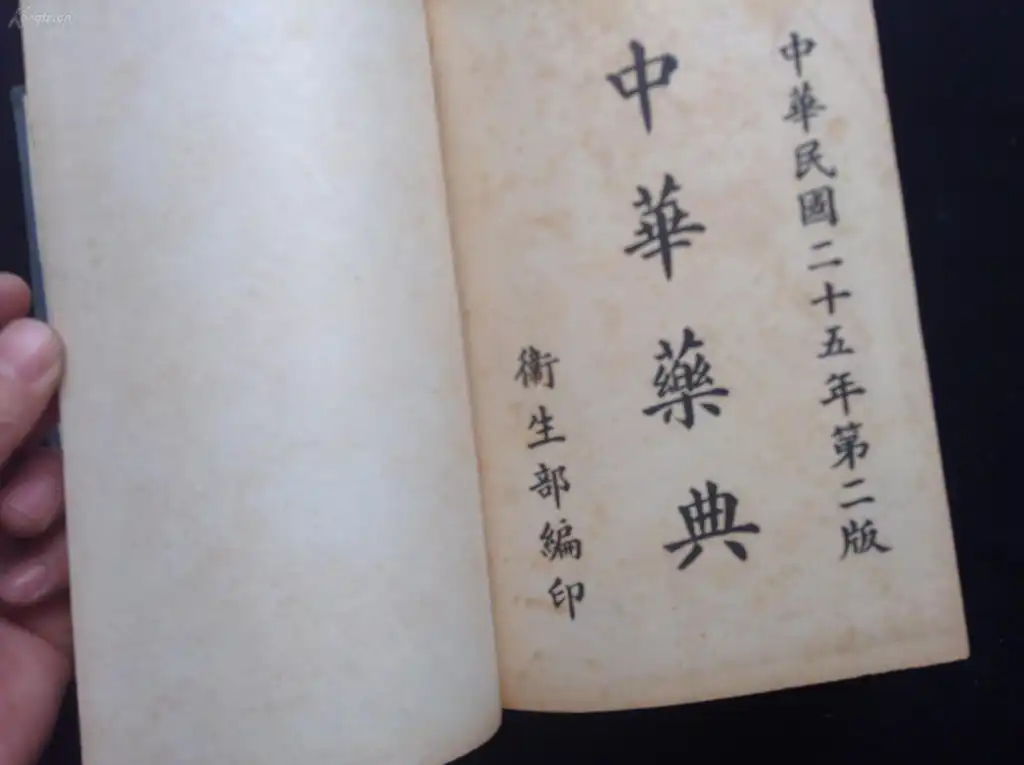 中華民國二十五年第二版
中華藥典
衞生部編印